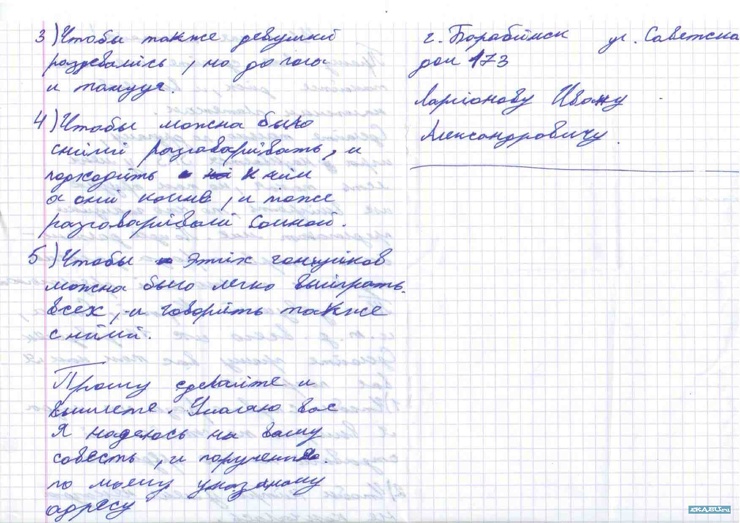 3) Чтобы также девушки
раздевались, но до гола
и танцуя.
4) Чтобы можна было
сними разговаривать, и
подходить к ним
а они комне, и тоже
разговаривали Сомной.
5) Чтобы этих гонщиков
можна было легко выиграть.
всех, и говорить также
сними.
Прошу сделайте и
вышлете. Умаляю вас
Я надеюсь на вашу
совесть, и поручения.
по моему указаному
адресу
г. Барабинск ул. Советска
дом 173
Ларионову Ивану
Александровичу.